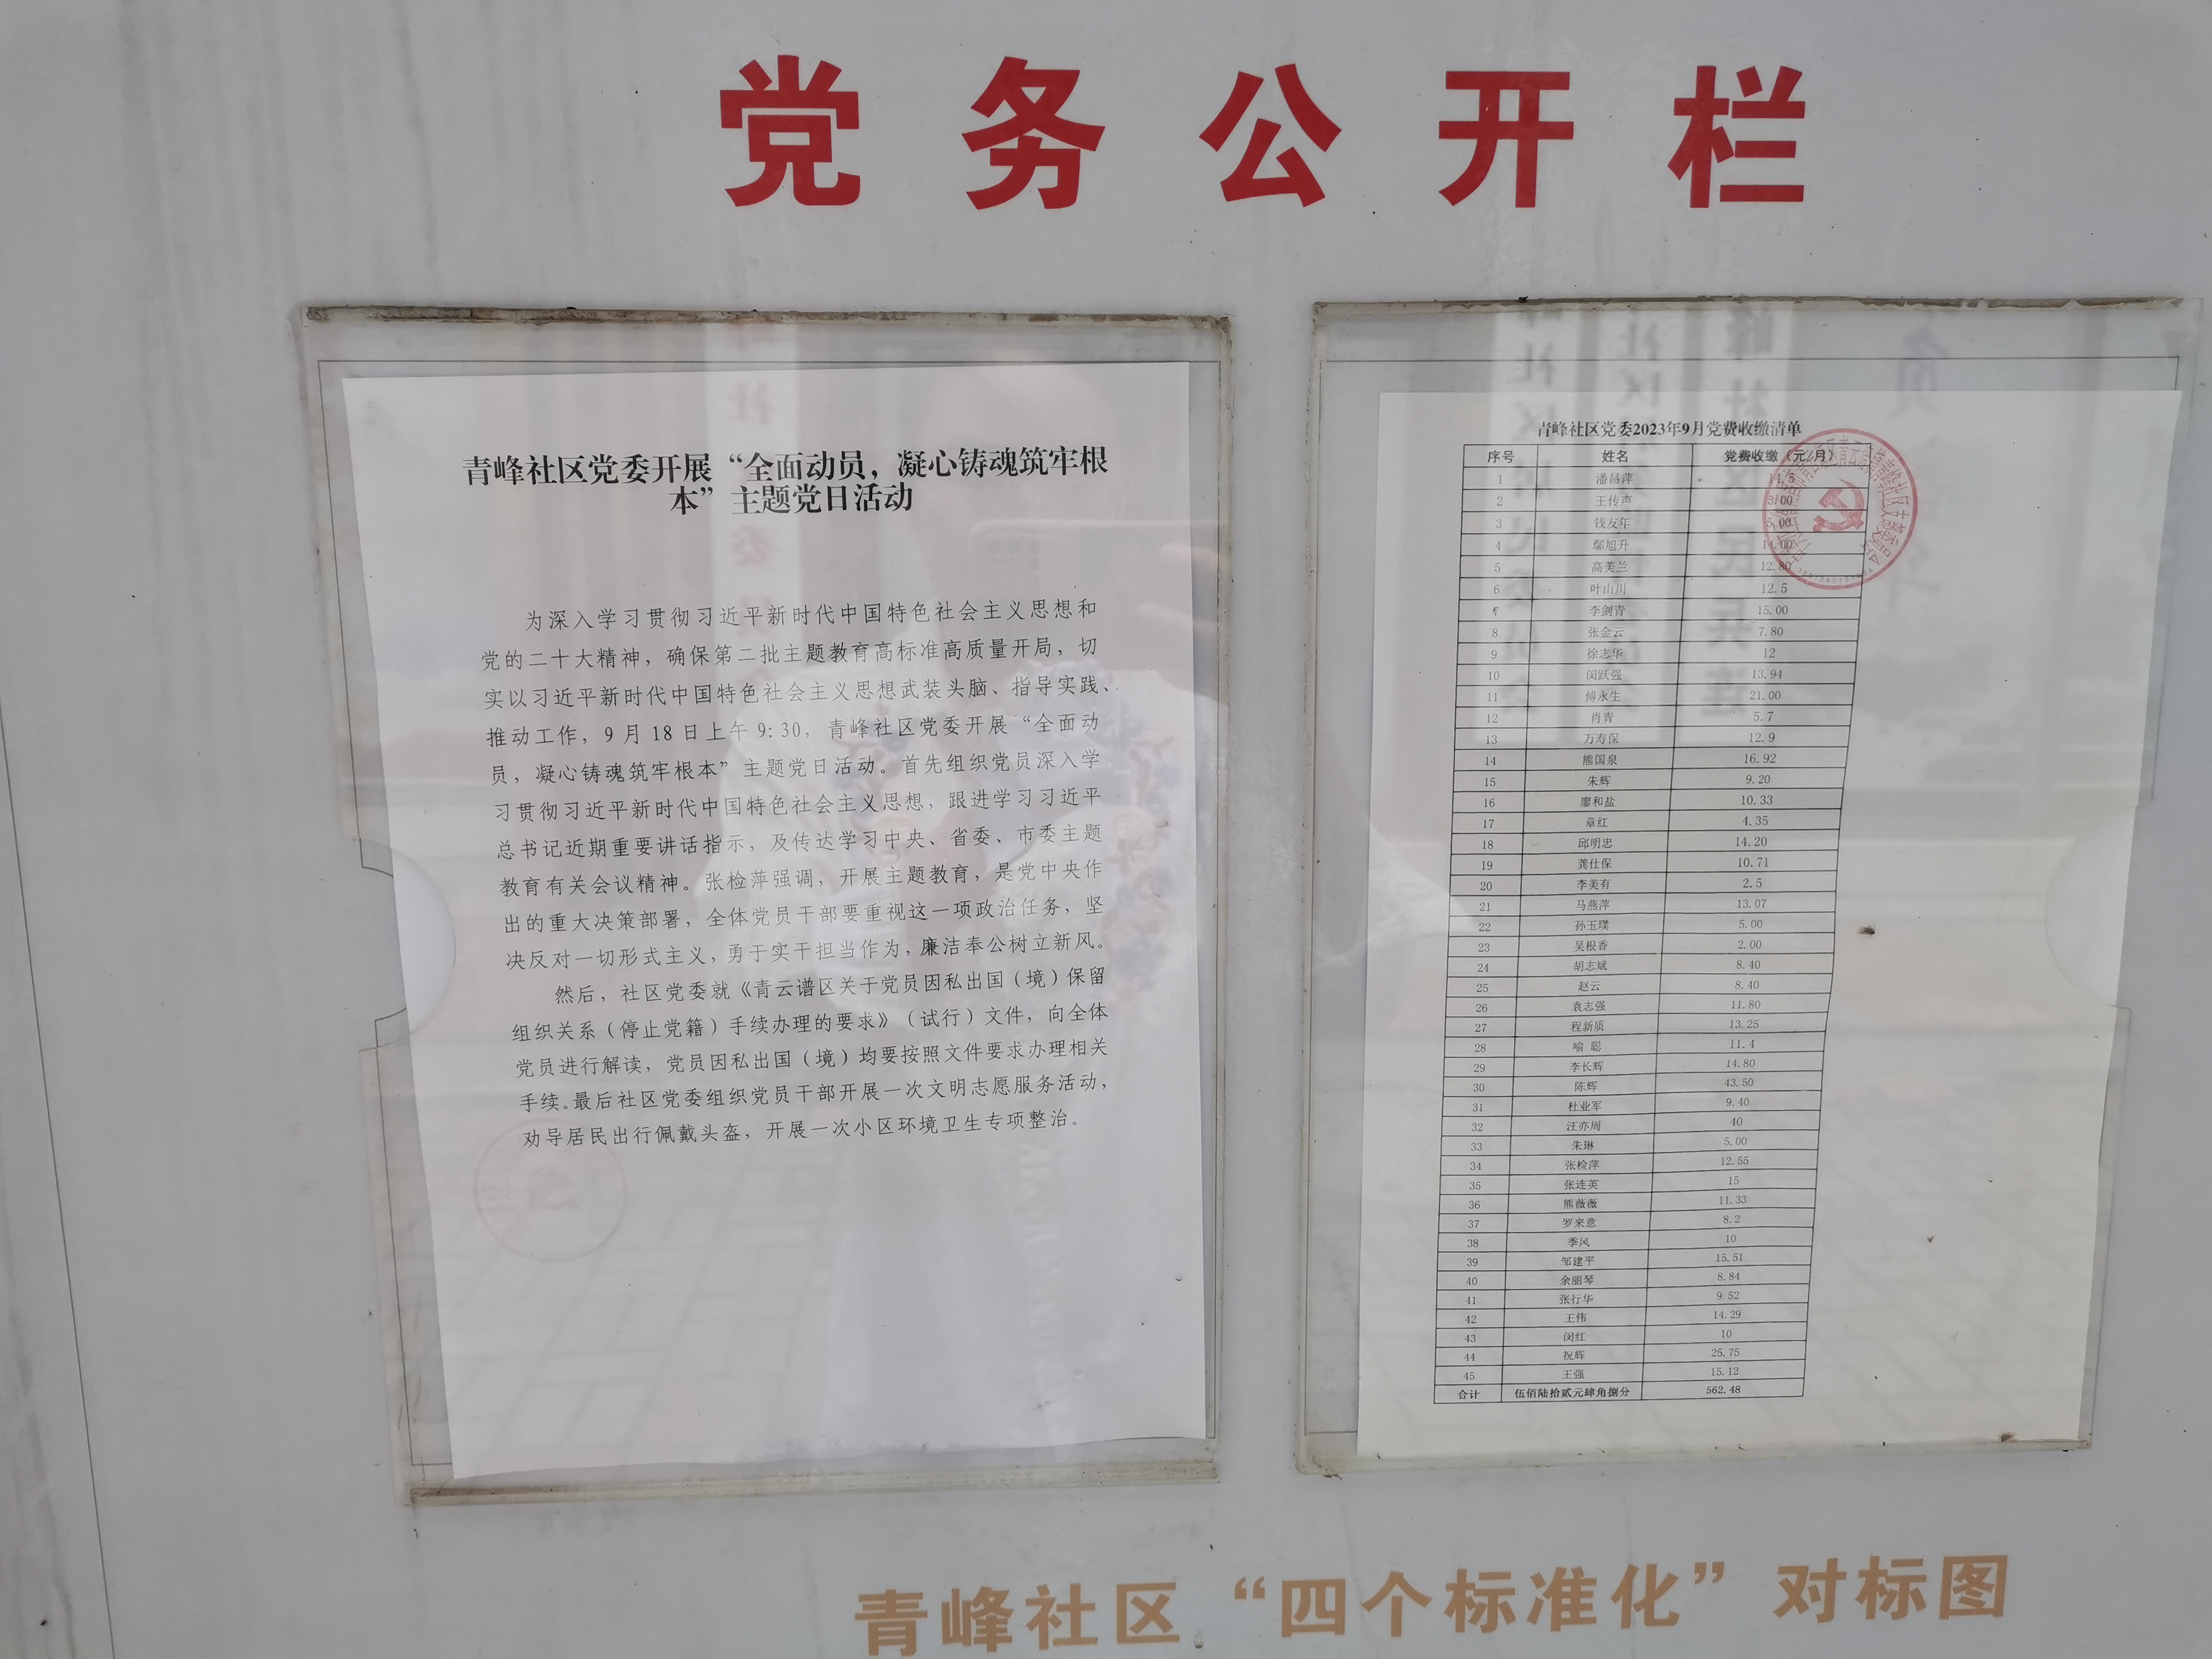 党务公开栏
青峰社区党委开展“全面动员，凝心铸魂筑牢根
本”主题党日活动
为深入学习贯彻习近平新时代中国特色社会主义思想和
党的二十大精神，确保第二批主题教育高标准高质量开局，切
实以习近平新时代中国特色社会主义思想武装头脑、指导实践、
推动工作，9月18日上午9:30，青峰社区党委开展“全面动
员，凝心铸魂筑牢根本”主题党日活动。首先组织党员深入学
习贯彻习近平新时代中国特色社会主义思想，跟进学习习近平
总书记近期重要讲话指示，及传达学习中央、省委、市委主题
教育有关会议精神。张检萍强调，开展主题教育，是党中央作
出的重大决策部署，全体党员干部要重视这一项政治任务，坚
决反对一切形式主义，勇于实干担当作为，廉洁奉公树立新风。
然后，社区党委就《青云谱区关于党员因私出国（境）保留
组织关系（停止党籍）手续办理的要求》（试行）文件，向全体
党员进行解读，党员因私出国（境）均要按照文件要求办理相关
手续。最后社区党委组织党员干部开展一次文明志愿服务活动，
劝导居民出行佩戴头盔，开展一次小区环境卫生专项整治。
青峰社区党委2023年9月党费收缴清单
序号 姓名 党费收缴（元/月）
1 潘昌萍 14.5
2 王传声 5.00
3 钱友年 5.00
4 鄢旭升 14.00
5 高美兰 12.80
6 叶山川 12.5
7 李剑青 15.00
8 张金云 7.80
9 徐志华 12
10 闵跃强 13.94
11 傅永生 21.00
12 肖青 5.7
13 万寿保 12.9
14 熊国泉 16.92
15 朱辉 9.20
16 廖和盐 10.33
17 章红 4.35
18 邱明忠 14.20
19 龚仕保 10.71
20 李美有 2.5
21 马燕萍 13.07
22 孙玉璞 5.00
23 吴根香 2.00
24 胡志斌 8.40
25 赵云 8.40
26 袁志强 11.80
27 程新质 13.25
28 喻 聪 11.4
29 李长辉 14.80
30 陈辉 43.50
31 杜业军 9.40
32 汪亦周 40
33 朱琳 5.00
34 张检萍 12.55
35 张连英 15
36 熊薇薇 11.33
37 罗来意 8.2
38 季风 10
39 邹建平 15.51
40 余丽琴 8.84
41 张行华 9.52
42 王伟 14.29
43 闵红 10
44 祝辉 25.75
45 王强 15.12
合计 伍佰陆拾贰元肆角捌分 562.48
青峰社区“四个标准化”对标图